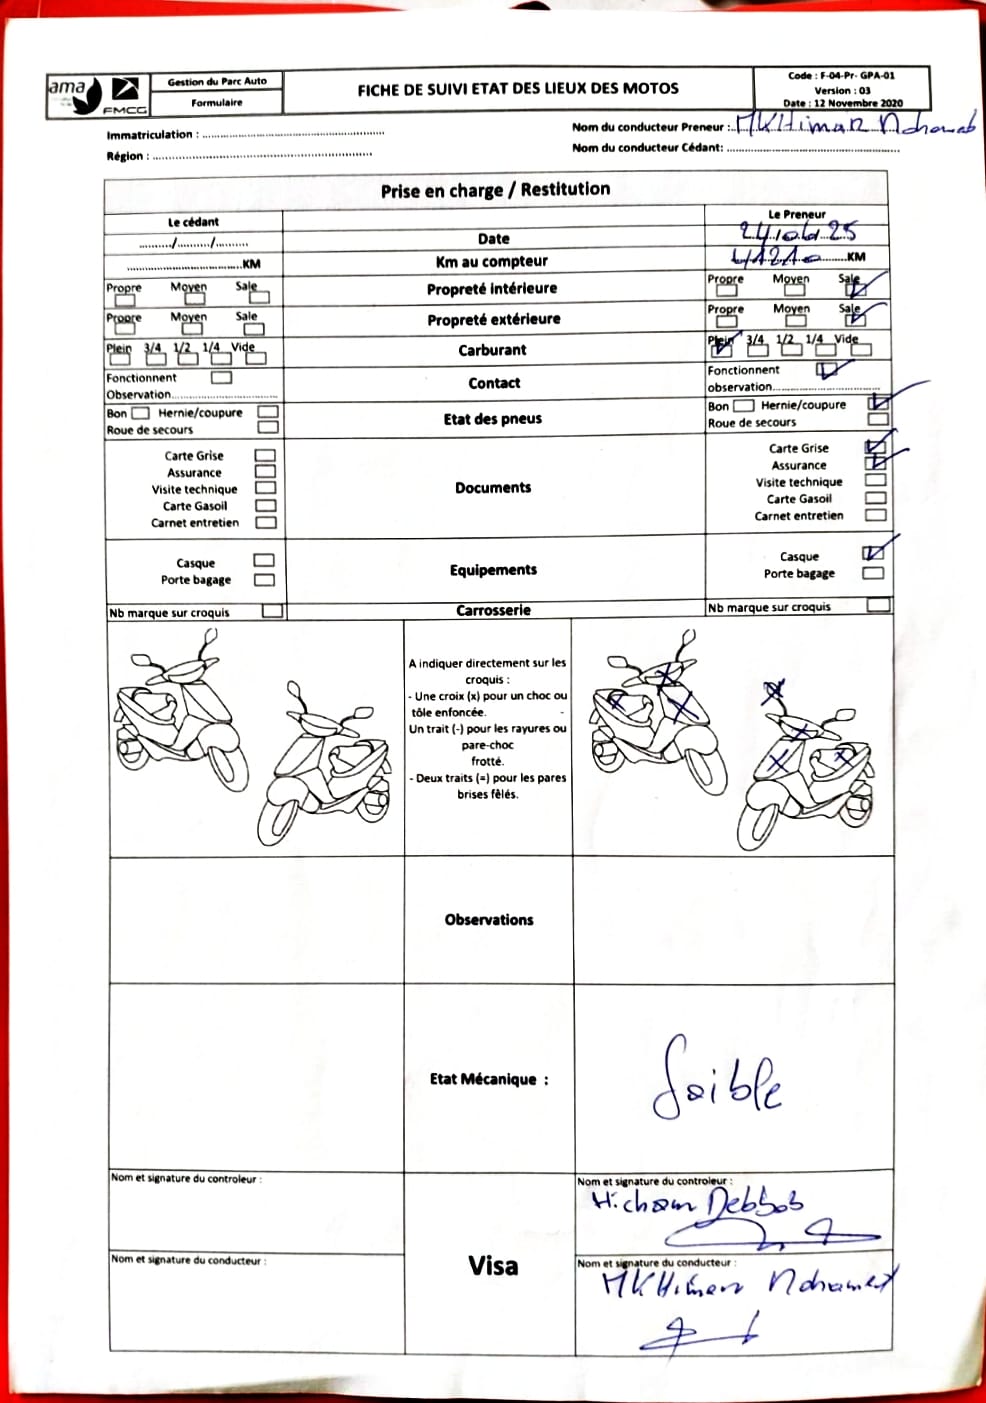 ama
FMCG
Gestion du Parc Auto
Formulaire
FICHE DE SUIVI ETAT DES LIEUX DES MOTOS
Code : F-04-Pr- GPA-01
Version : 03
Date : 12 Novembre 2020
Immatriculation :
Nom du conducteur Preneur : MKHimar Mohamed
Région :
Nom du conducteur Cédant:
Prise en charge / Restitution
Le cédant
Le Preneur
........./........./.........
Date
24/06/25
KM
Km au compteur
41210 KM
Propre Moyen Sale
Propreté intérieure
Propre Moyen Sale
Propre Moyen Sale
Propreté extérieure
Propre Moyen Sale
Plein 3/4 1/2 1/4 Vide
Carburant
Plein 3/4 1/2 1/4 Vide
Fonctionnent
Observation
Contact
Fonctionnent
observation
Bon Hernie/coupure
Roue de secours
Etat des pneus
Bon Hernie/coupure
Roue de secours
Carte Grise
Assurance
Visite technique
Carte Gasoil
Carnet entretien
Documents
Carte Grise
Assurance
Visite technique
Carte Gasoil
Carnet entretien
Casque
Porte bagage
Equipements
Casque
Porte bagage
Nb marque sur croquis
Carrosserie
Nb marque sur croquis
A indiquer directement sur les
croquis :
- Une croix (x) pour un choc ou
tôle enfoncée. -
Un trait (-) pour les rayures ou
pare-choc
frotté.
- Deux traits (=) pour les pares
brises fêlés.
Observations
Etat Mécanique :
Faible
Nom et signature du controleur :
Nom et signature du controleur :
Hicham Debbob
Visa
Nom et signature du conducteur :
Nom et signature du conducteur :
MKHimar Mohamed